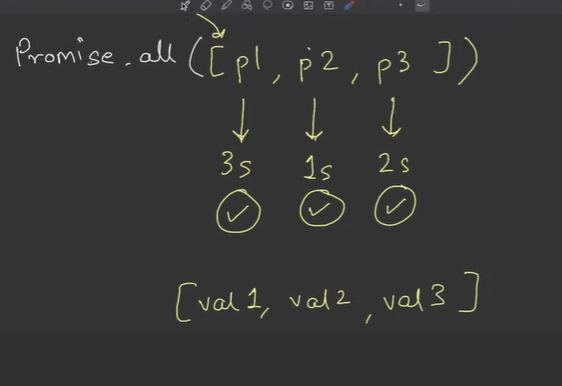 Promise.all([p1, p2, p3])
3s 1s 2s
[val1, val2, val3]